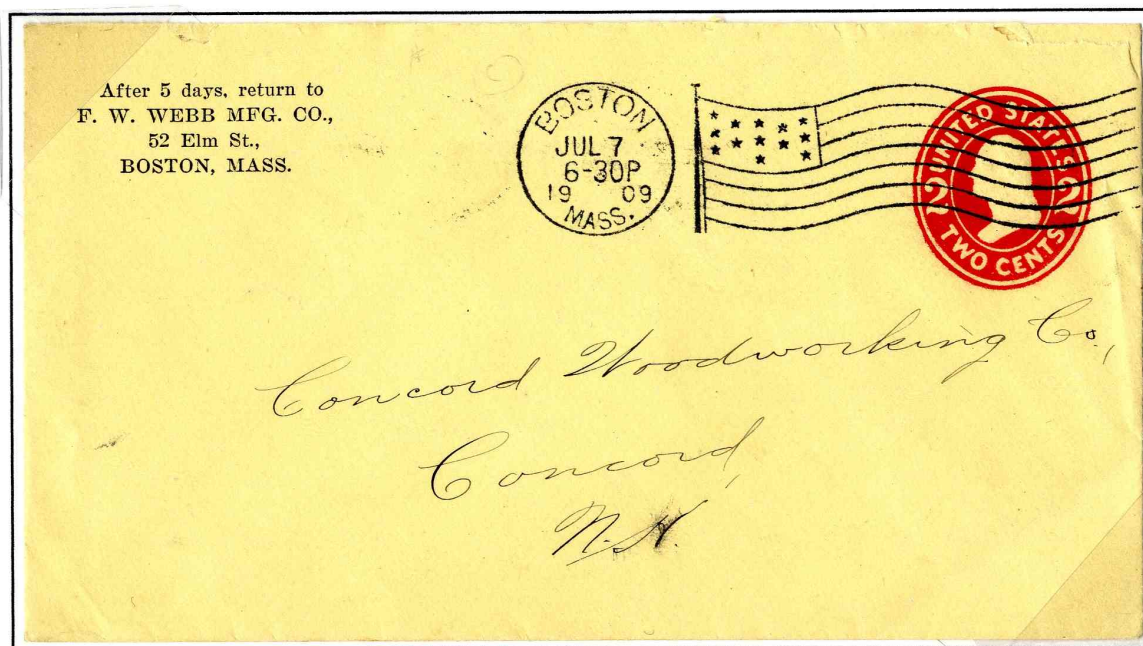 After 5 days, return to
F. W. WEBB MFG. CO.,
52 Elm St.,
BOSTON, MASS.
BOSTON
JUL 7
6-30P
19 09
MASS.
UNITED STATES
2 2
TWO CENTS
Concord Woodworking Co.,
Concord,
N.H.